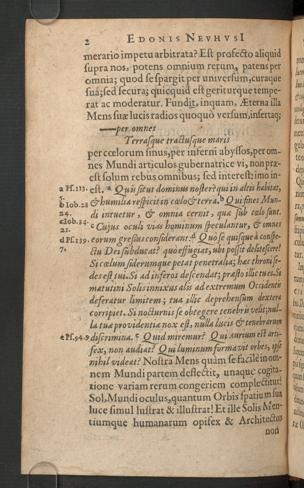 2 EDONIS NEVHVSI
merario impetu arbitrata? Est profecto aliquid
supra nos, potens omnium rerum, patens per
omnia; quod se spargit per universum, curaque
sua; sed secura; quicquid est gerit urque tempe-
rat ac moderatur. Fundit, inquam, Æterna illa
Mens suæ lucis radios quoquo versum, insertaq;
—per omnes
Terrasque tractusque maris
per cœlorum sinus, per inferni abyssos, per om-
nes Mundi articulos gubernatrice vi, non præ-
est solum rebus omnibus; sed interest; imo in-
a Ps. 113. est. a Quis situs dominus noster? qui in altis habitat,
5.
b Iob. 28 & humilia respicit in cœlo & terra. b Qui fines Mun-
24. di intuetur, & omnia cernit, quæ sub cœlo sunt.
c Iob. 34. c Cujus oculi vias hominum speculantur, & omnes
21.
d Ps. 139. eorum gressus considerant. d Quo se quisque à conspe-
7. ctu Dei subducat? quo effugiat, ubi possit delitescere?
Si cœlum siderumque petat penetralia; hæc throni se-
des est tui. Si ad inferos descendat; præsto illic tu es. Si
matutini Solis innixus alis ad extremum Occidentis
deferatur limitem; tua illic deprehensum dextera
corripiet. Si nocturnis se obtegere tenebris velit; nul-
la tua providentia nox est, nulla lucis & tenebrarum
e Ps. 94. 9 discrimina. e Quid miremur? Qui aurium est arti-
fex, non audiat? Qui luminum formavit orbes, ipse
nihil videat? Nostra Mens quum se facile in om-
nem Mundi partem deflectit, unaque cogita-
tione variam rerum congeriem complectitur!
Sol, Mundi oculus, quantum Orbis spatium sua
luce simul lustrat & illustrat! Et ille Solis Men-
tiumque humanarum opifex & Architectus
non